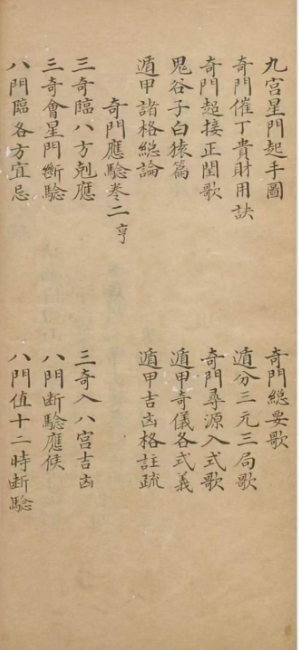 九宮星門起手圖
奇門總要歌
奇門催丁貴財用訣
遁分三元三局歌
奇門超接正閏歌
奇門尋源入式歌
鬼谷子白猿篇
遁甲奇儀各式義
遁甲諸格總論
遁甲吉凶格註疏
奇門應驗卷二亨
三奇臨八方剋應
三奇入八宮吉凶
三奇會星門斷驗
八門斷驗應候
八門臨各方宜忌
八門值十二時斷驗